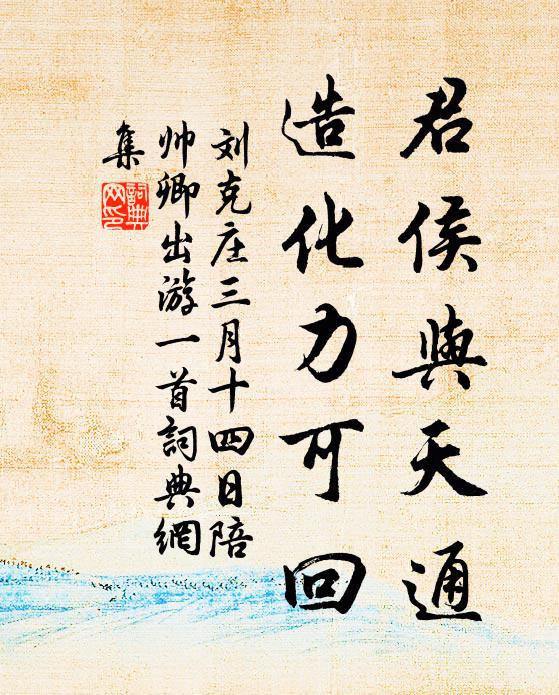 君侯與天通
造化力可回
刘克庄三月十四日陪
帅卿出游一首詞典網
集
詞典
网印